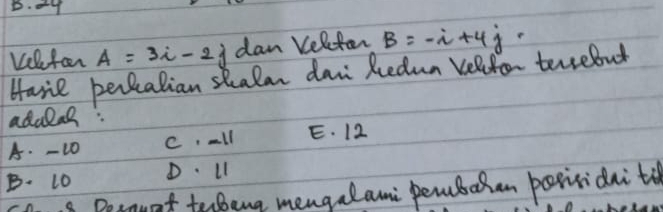 B. 24
Vektor A = 3i - 2j dan Vektor B = -i + 4j.
Hasil perkalian skalar dari kedua Vektor tersebut
adalah :
A. -10 C. -11 E. 12
B. 10 D. 11
terbang mengalami perubahan posisi dari